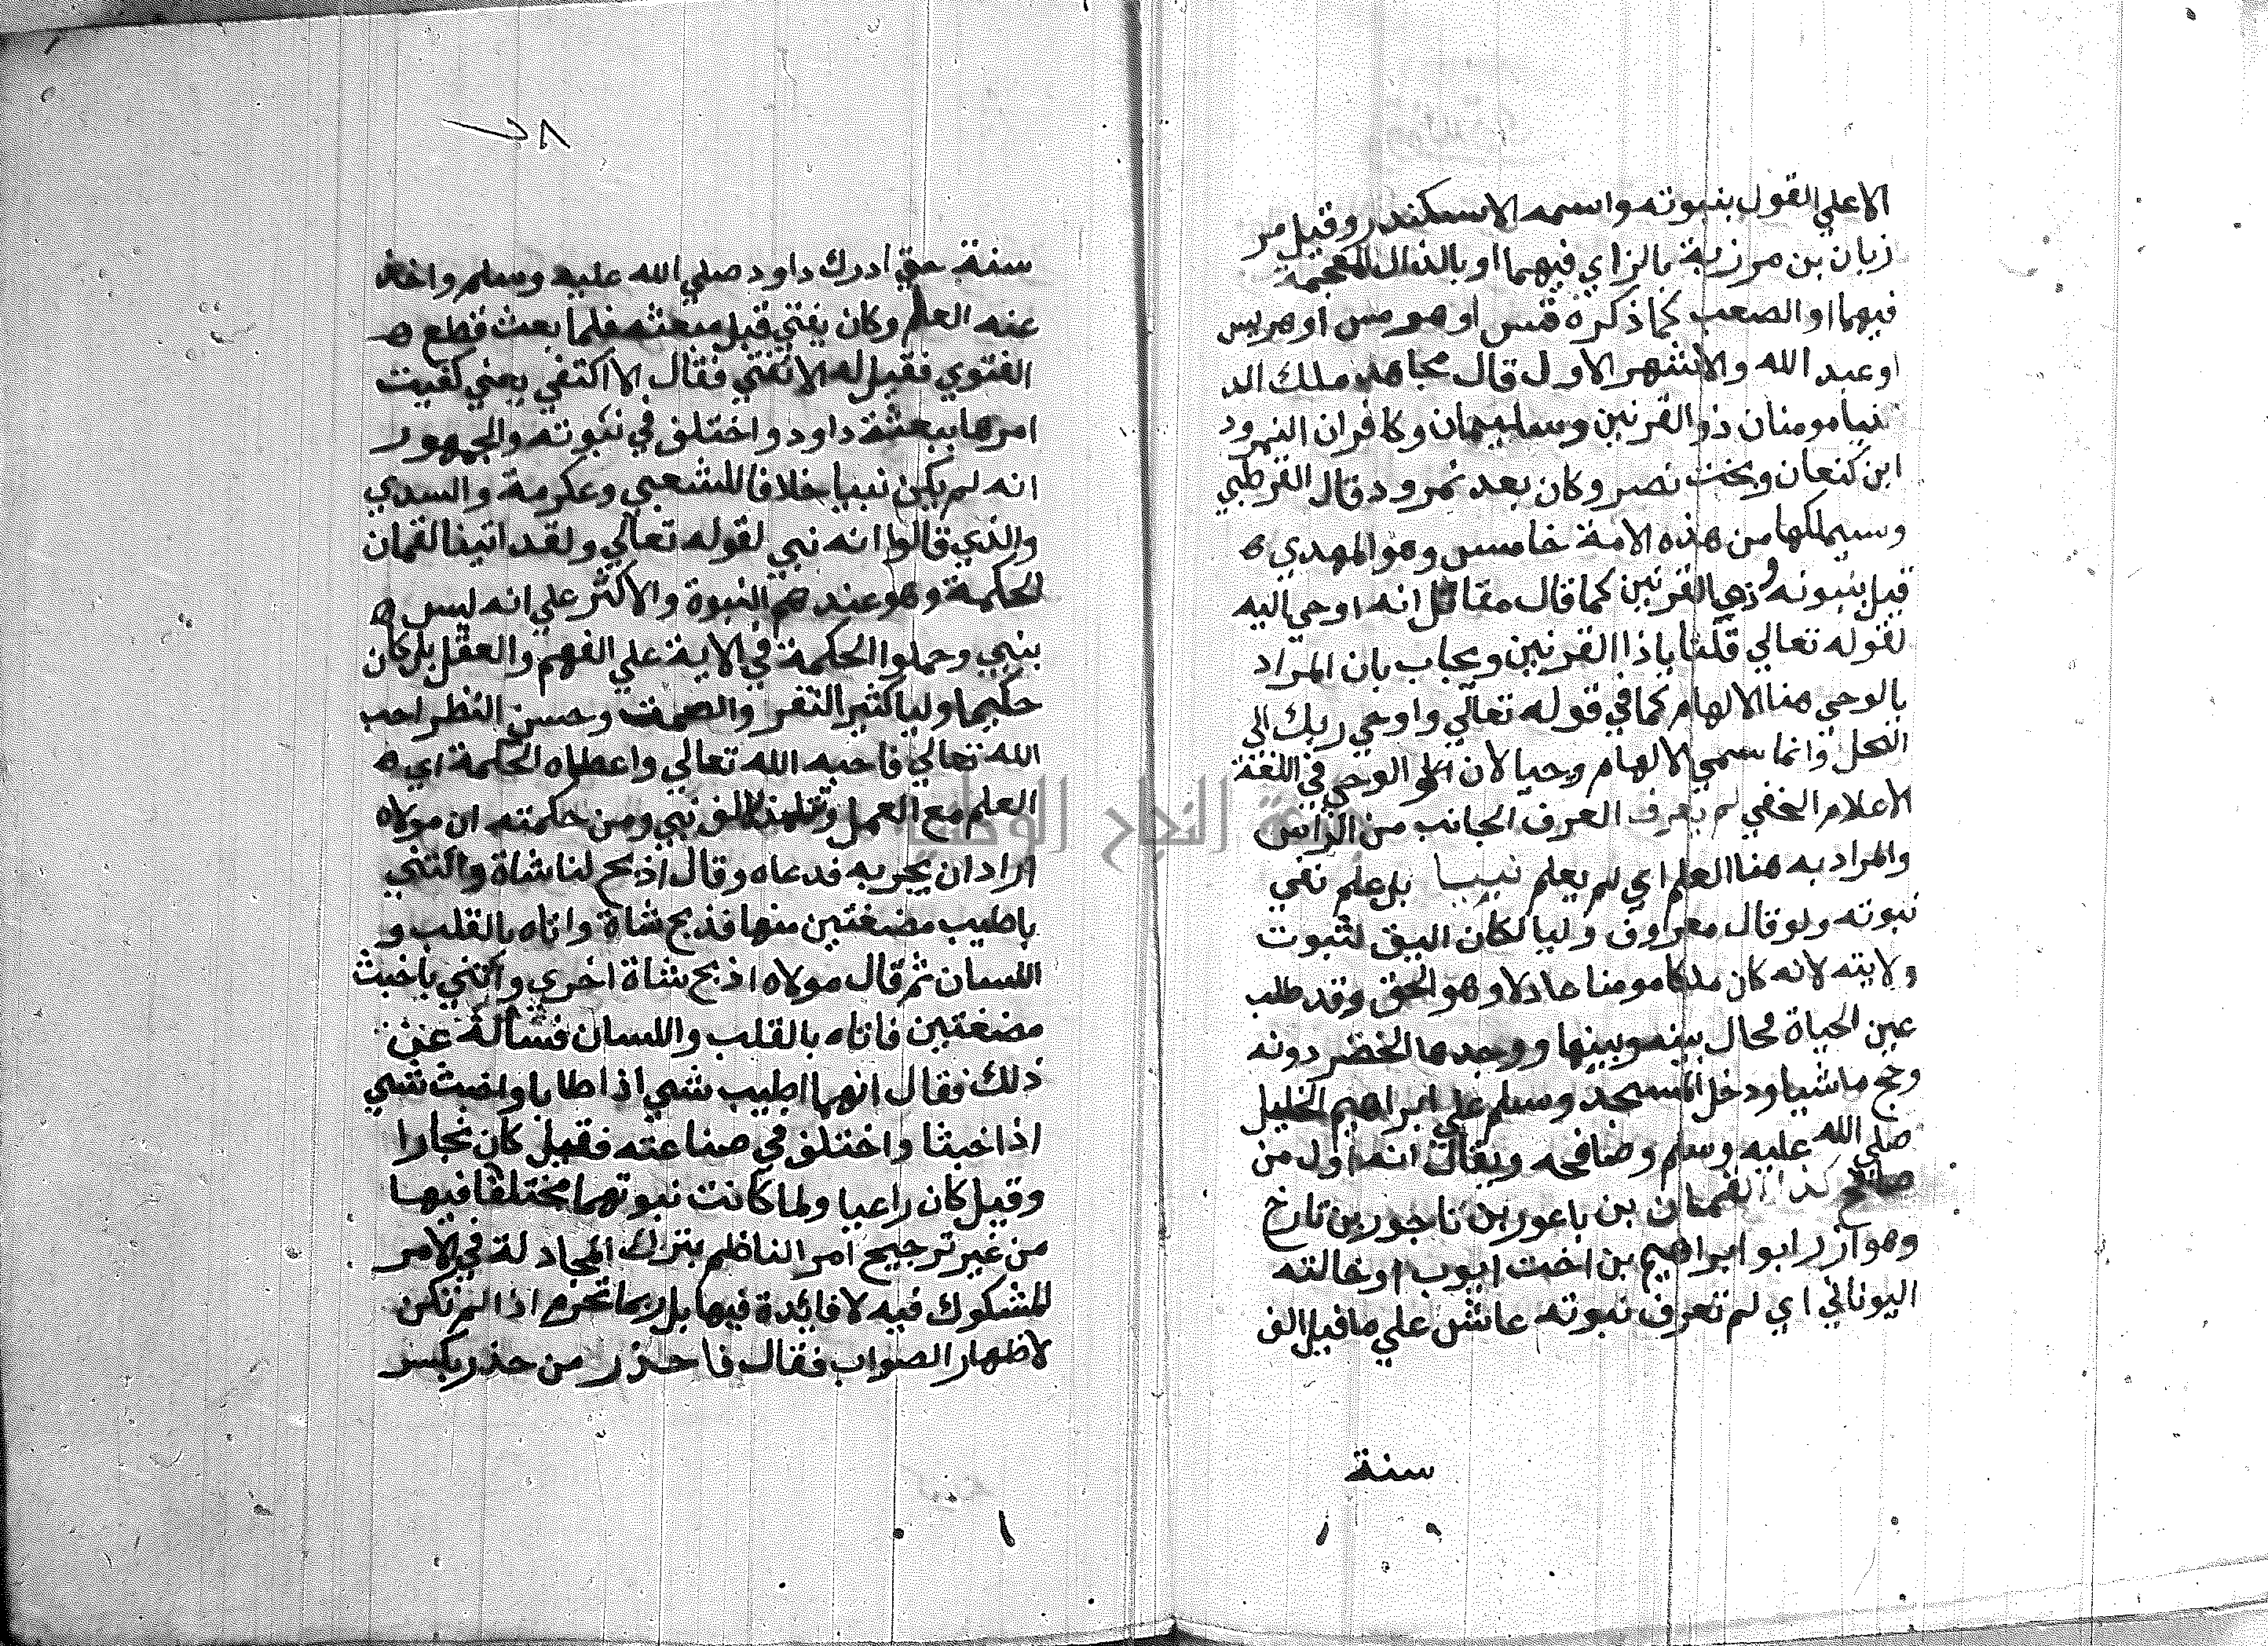 الاعلي القول بنبوته واسمه الاسكندر وقيل مر
زبان بن مرزبة بالزاي فيهما او بالذال المعجمة
فيهما او الصعب كما ذكره قس او هومس او هريس
او عبد الله والاشهر الاول قال مجاهد ملك الد
نيا مومنان ذو القرنين وسليمان وكافران النمرود
ابن كنعان وبخت نصر وكان بعد نمرود قال القرطبي
وسيملكها من هذه الامة خامس وهو المهدي ه
قيل بنبوته وذي القرنين كما قال مقاتل انه اوحي اليه
لقوله تعالي قلنا ياذا القرنين ويجاب بان المراد
بالوحي هنا الالهام كما في قوله تعالي واوحي ربك الي
النحل وانما سمي الالهام وحيا لان الوحي في اللغة
الاعلام الخفي لم يعرف العرف الجانب من الراس
والمراد به هنا العلم اي لم يعلم نبيا بل علم نفي
نبوته ولو قال معروف وليا لكان اليق لثبوت
ولايته لانه كان ملكا مومنا عادلا وهو الحق وقد طلب
عين الحياة فحال بينه وبينها ووجدها الخضر دونه
وحج ماشيا ودخل المسجد وسلم علي ابراهيم الخليل
صلي الله عليه وسلم وصافحه ويقال انه اول من
صافح كذا لقمان بن باعور بن ناحور بن تارخ
وهو ازر ابو ابراهيم بن اخت ايوب او خالته
اليوناني اي لم تعرف نبوته عاش علي ما قيل الف
سنة
٢٨
سنة حتي ادرك داود صلي الله عليه وسلم واخذ
عنه العلم وكان يفتي قبل مبعثه فلما بعث قطع ه
الفتوي فقيل له الا تفتي فقال الا اكتفي يعني كفيت
امرها ببعثة داود واختلف في نبوته والجمهور
انه لم يكن نبيا خلافا للشعبي وعكرمة والسدي
والذي قالوا انه نبي لقوله تعالي ولقد اتينا لقمان
الحكمة وهو عندهم النبوة والاكثر علي انه ليس ه
بنبي وحملوا الحكمة في الاية علي الفهم والعقل بل كان
حكيما وليا كثير التفكر والصمت وحسن النظر احب
الله تعالي فاحبه الله تعالي واعطاه الحكمة اي ه
العلم مع العمل وتلمذ لالف نبي ومن حكمته ان مولاه
اراد ان يجربه فدعاه وقال اذبح لنا شاة واتني
باطيب مضغتين منها فذبح شاة واتاه بالقلب و
اللسان ثم قال مولاه اذبح شاة اخري واتني باخبث
مضغتين فاتاه بالقلب واللسان فسأله عن
ذلك فقال انهما اطيب شي اذا طابا واخبث شي
اذا خبثا واختلف في صناعته فقيل كان نجارا
وقيل كان راعيا ولما كانت نبوتهما مختلفا فيها
من غير ترجيح امر الناظم بترك المجادلة في الامر
المشكوك فيه لا فائدة فيها بل ربما تحرم اذا لم تكن
لاظهار الصواب فقال فاحذر من حذر بكسر